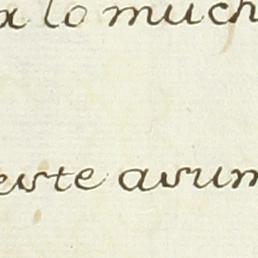 a lo much
este asum